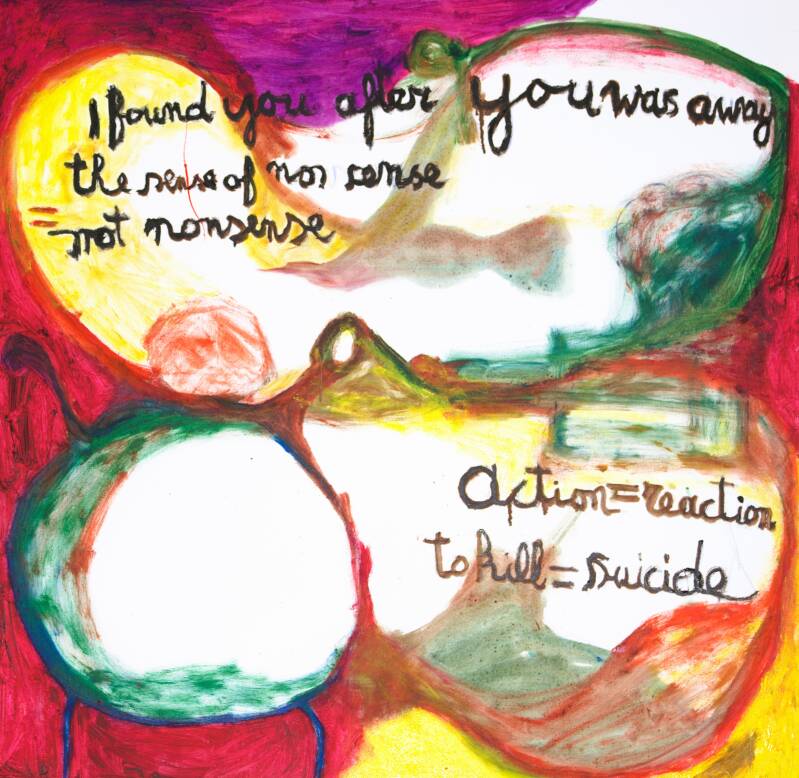 I found you after you was away
the sense of non sense
= not nonsense
action=reaction
to kill=suicide